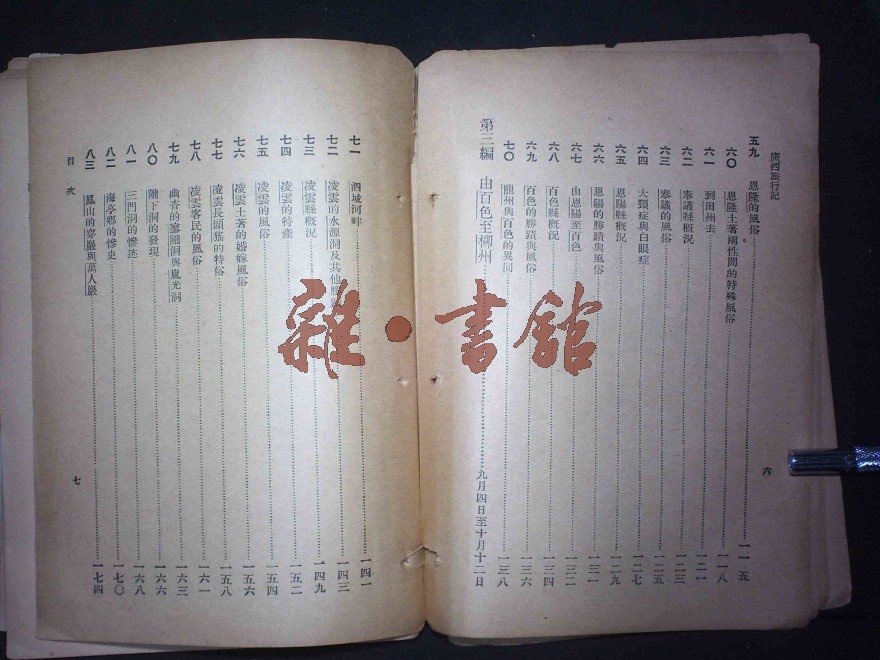 廣西旅行記
五九 恩隆的風俗 一一五
六〇 恩隆土著兩性間的特殊風俗 一一八
六一 到田州去 一二一
六二 奉議縣概況 一二三
六三 奉議的風俗 一二五
六四 大頸症與白眼症 一二七
六五 恩陽縣概況 一二九
六六 恩陽的勝蹟與風俗 一三一
六七 由恩陽至百色 一三二
六八 百色縣概況 一三四
六九 百色的勝蹟與風俗 一三六
七〇 龍州與百色的異同 一三八
第三編 由百色至柳州 九月四日至十月十二日
六
七一 泗城河畔 一四一
七二 凌雲的水源洞及其他勝 一四三
七三 凌雲縣概況 一四九
七四 凌雲的特產 一五二
七五 凌雲的風俗 一五四
七六 凌雲土著的婚嫁風俗 一五六
七七 凌雲長頭猺的特俗 一五八
七八 凌雲客民的風俗 一六一
七九 幽杳的寥漞洞與嵐光洞 一六三
八〇 隴下洞的發現 一六六
八一 三門洞的慘迹 一六八
八二 海亭鄉的慘史 一七〇
八三 鳳山的穿巖與萬人巖 一七四
目次
七
雜·書館